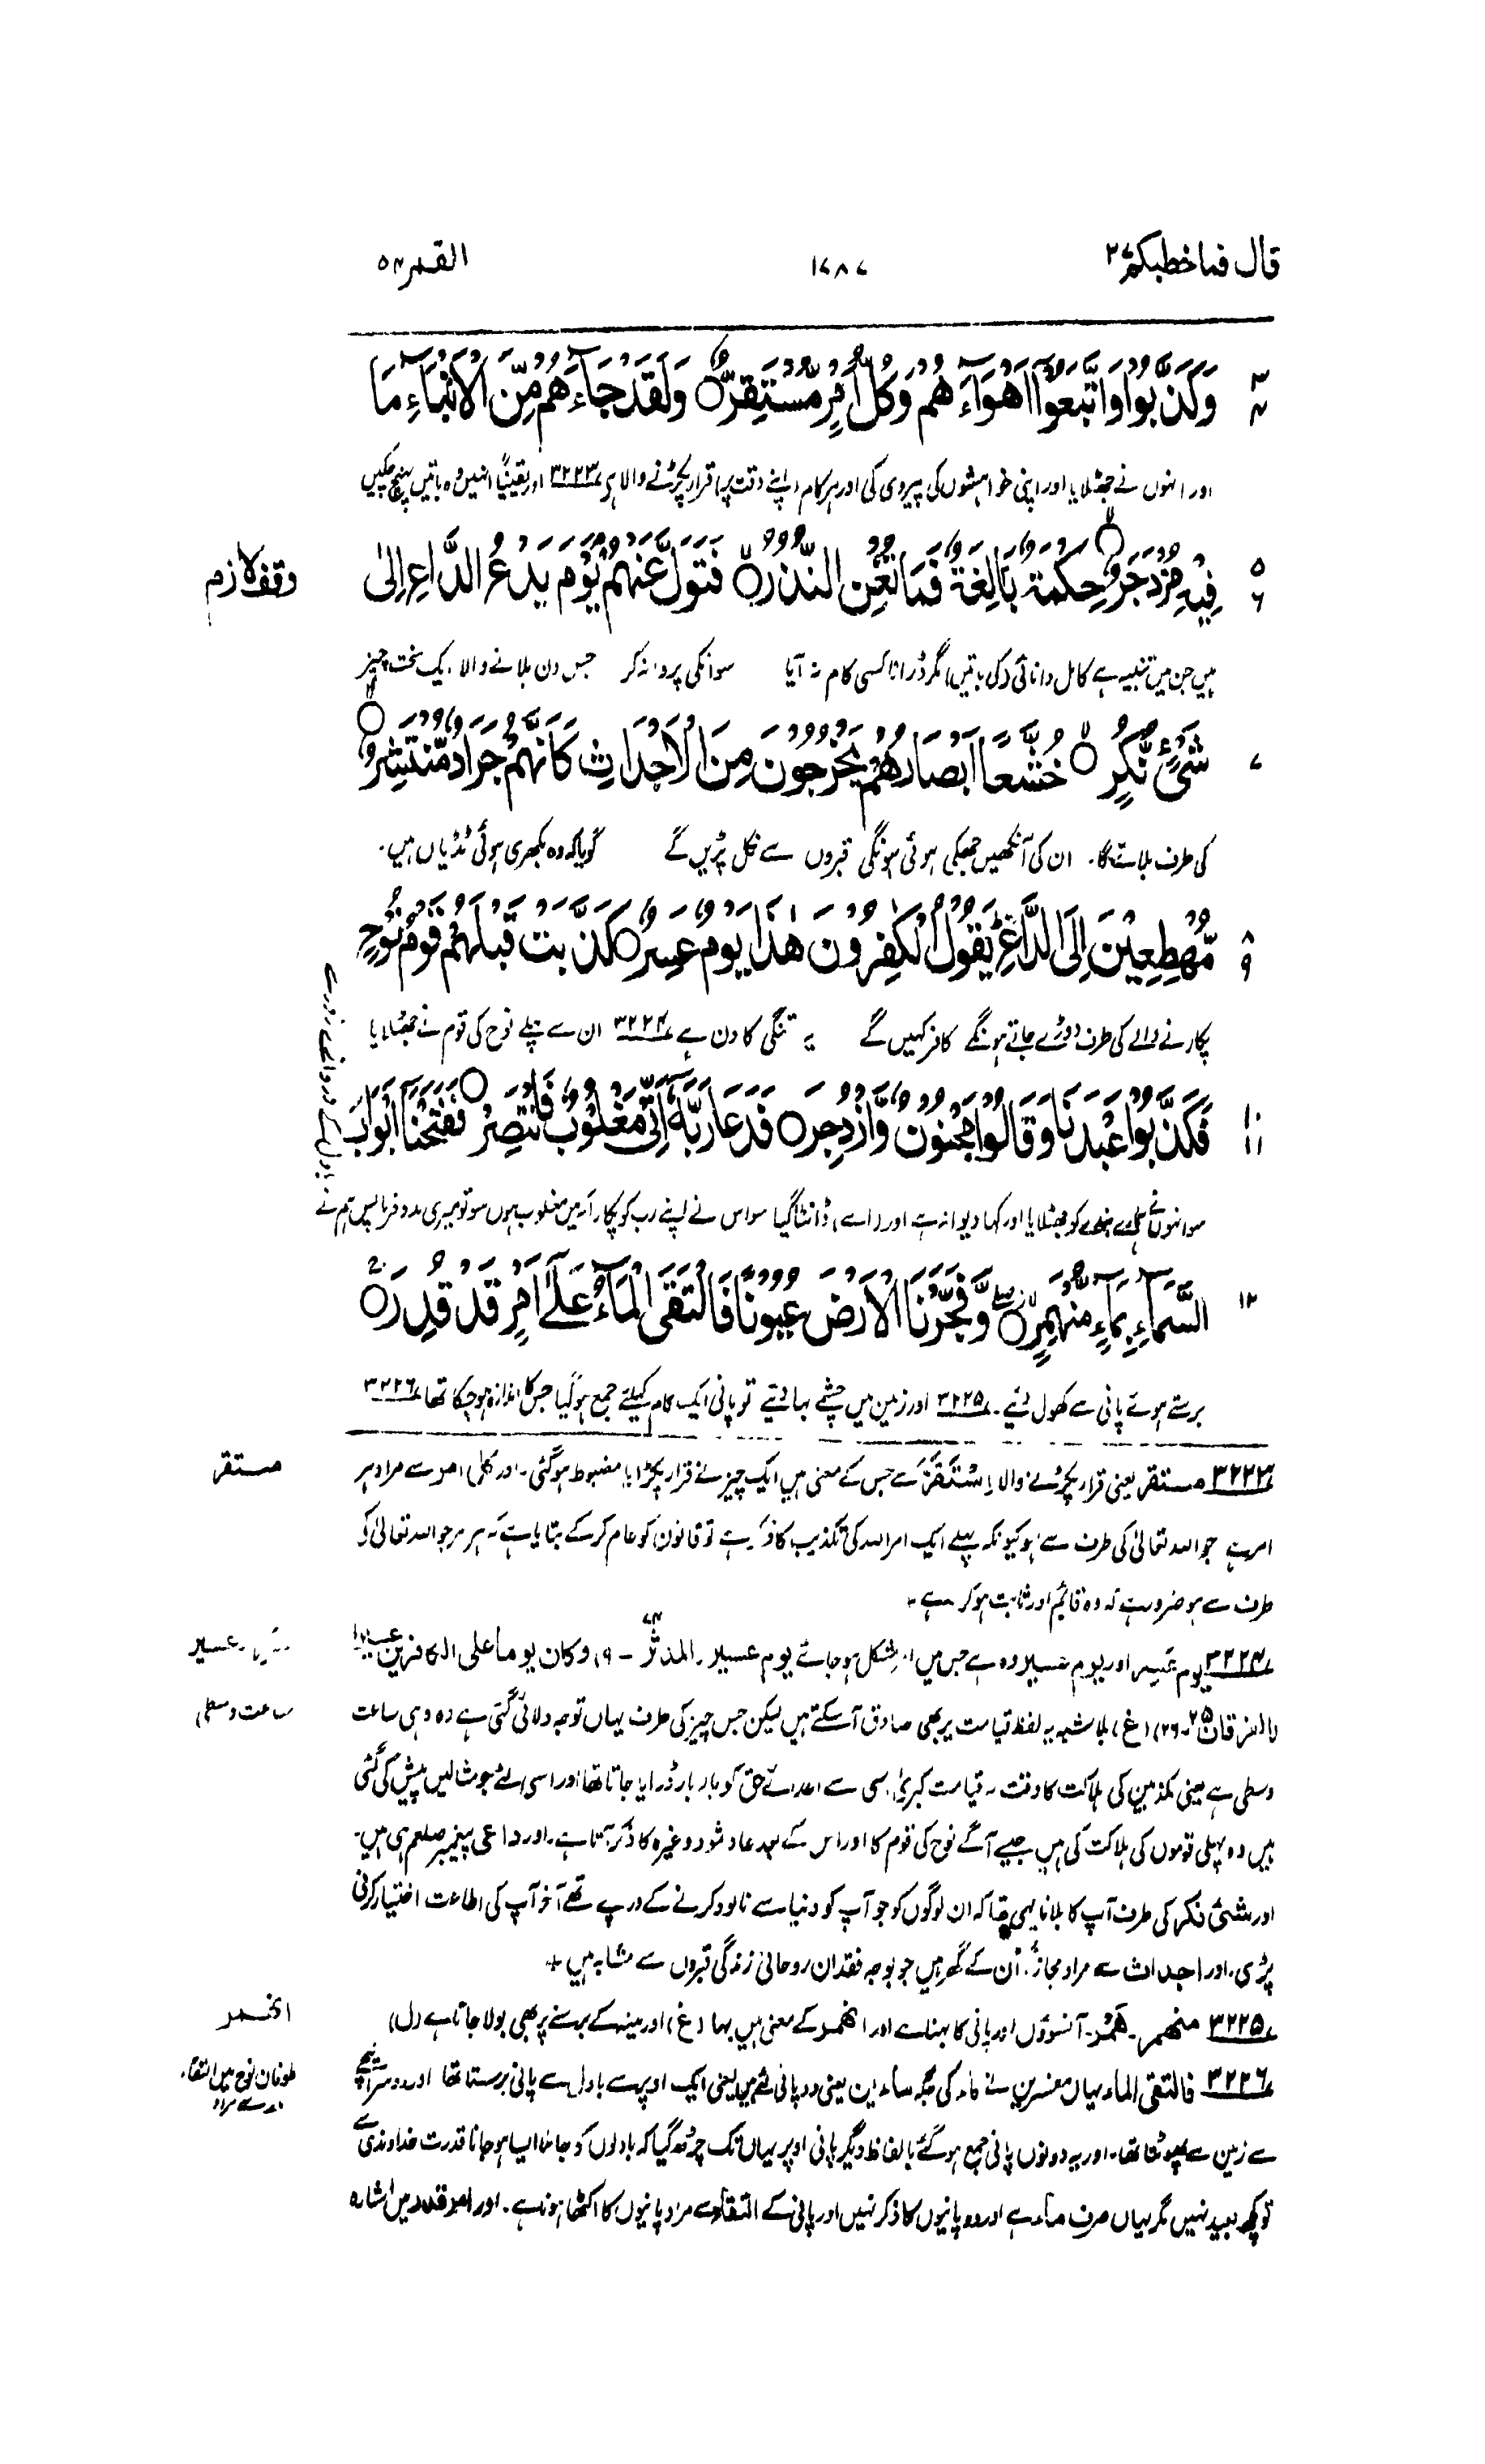 قال فما خطبکم ۲۷
۱۷۸۷
القمر ۵۴
۳ ۴
وَكَذَّبُوا وَاتَّبَعُوٓا اَهْوَآءَهُمْ وَكُلُّ اَمْرٍ مُّسْتَقِرٌّ ○ وَلَقَدْ جَآءَهُمْ مِّنَ الْاَنْۢبَآءِ مَا
اور انہوں نے جھٹلایا اور اپنی خواہشوں کی پیروی کی اور ہر کام (اپنے وقت پر) قرار پکڑنے والا ہے ۳۲۲۳ اور یقیناً انہیں وہ باتیں پہنچ چکیں
۵ ۶
فِيْهِ مُزْدَجَرٌ ○ حِكْمَةٌۢ بَالِغَةٌ فَمَا تُغْنِ النُّذُرُ ○ فَتَوَلَّ عَنْهُمْ يَوْمَ يَدْعُ الدَّاعِ اِلٰى
وقف لازم
ہیں جن میں تنبیہ ہے کامل دانائی (کی باتیں) مگر ڈرانا کسی کام نہ آیا سو انکی پروا نہ کر جس دن بلانے والا ایک سخت چیز
۷
شَيْءٍ نُّكُرٍ ○ خُشَّعًا اَبْصَارُهُمْ يَخْرُجُوْنَ مِنَ الْاَجْدَاثِ كَاَنَّهُمْ جَرَادٌ مُّنْتَشِرٌ ○
کی طرف بلائے گا۔ ان کی آنکھیں جھکی ہوئی ہونگی قبروں سے نکل پڑیں گے گویا کہ وہ بکھری ہوئی ٹڈیاں ہیں۔
۸ ۹
مُّهْطِعِيْنَ اِلَى الدَّاعِ يَقُوْلُ الْكٰفِرُوْنَ هٰذَا يَوْمٌ عَسِرٌ ○ كَذَّبَتْ قَبْلَهُمْ قَوْمُ نُوْحٍ
پکارنے والے کی طرف دوڑے جاتے ہونگے کافر کہیں گے یہ تنگی کا دن ہے ۳۲۲۴ ان سے پہلے نوح کی قوم نے جھٹلایا
۱۰ ۱۱
فَكَذَّبُوْا عَبْدَنَا وَقَالُوْا مَجْنُوْنٌ وَّازْدُجِرَ ○ فَدَعَا رَبَّهٗٓ اَنِّيْ مَغْلُوْبٌ فَانْتَصِرْ ○ فَفَتَحْنَآ اَبْوَابَ
سو انہوں نے ہمارے بندے کو جھٹلایا اور کہا دیوانہ ہے اور (اسے) ڈانٹا گیا سو اس نے اپنے رب کو پکارا کہ میں مغلوب ہوں سو تو میری مدد فرما پس ہم نے
بادل کے دروازے زور سے
۱۲
السَّمَآءِ بِمَآءٍ مُّنْهَمِرٍ ○ وَّفَجَّرْنَا الْاَرْضَ عُيُوْنًا فَالْتَقَى الْمَآءُ عَلٰٓى اَمْرٍ قَدْ قُدِرَ ○
برستے ہوئے پانی سے کھول دئیے۔ ۳۲۲۵ اور زمین میں چشمے بہا دیئے تو پانی ایک کام کیلئے جمع ہوگیا جس کا اندازہ ہوچکا تھا ۳۲۲۶
مستقر
۳۲۲۳ مستقر یعنی قرار پکڑنے والا اِسْتَقَرَّ سے جس کے معنی ہیں ایک چیز نے قرار پکڑا یا مضبوط ہوگئی۔ اور کل امر سے مراد ہر
امر ہے جو اللہ تعالیٰ کی طرف سے ہو کیونکہ پہلے ایک امر اللہ کی تکذیب کا ذکر ہے تو قانون کو عام کرکے بتایا ہے کہ ہر امر جو اللہ تعالیٰ کی
طرف سے ہو ضرور ہے کہ وہ قائم اور ثابت ہوکر رہے۔
عسیر
۳۲۲۴ یوم عَسِر اور یوم عسیر وہ ہے جس میں امر مشکل ہوجائے یوم عسیر (المدثر ۷۴ - ۹) وکان یوما علی الکافرین عسیرا
ساعت وسطی
(الفرقان ۲۵-۲۶) (غ) بلاشبہ یہ لفظ قیامت پر بھی صادق آسکتے ہیں لیکن جس چیز کی طرف یہاں توجہ دلائی گئی ہے وہ وہی ساعت
وسطی ہے یعنی مکذبین کی ہلاکت کا وقت نہ قیامت کبریٰ اسی سے اعدائے حق کو بار بار ڈرایا جاتا تھا اور اسی لئے جو مثالیں پیش کی گئی
ہیں وہ پہلی قوموں کی ہلاکت کی ہیں جیسے آگے نوح کی قوم کا اور اس کے بعد عاد ثمود وغیرہ کا ذکر آتا ہے۔ اور داعی پیغمبر صلعم ہی ہیں۔
اور شئ نکر کی طرف آپ کا بلانا یہی تھا کہ ان لوگوں کو جو آپ کو دنیا سے نابود کرنے کے درپے تھے آخر آپ کی اطاعت اختیار کرنی
پڑی۔ اور اجداث سے مراد مجازاً ان کے گھر ہیں جو بوجہ فقدان روحانی زندگی قبروں سے مشابہ ہیں +
انھمر
۳۲۲۵ منھمر۔ ھَمَر۔ آنسوؤں اور پانی کا بہنا ہے اور انھمر کے معنی ہیں بہا (غ) اور مینہ کے برسنے پر بھی بولا جاتا ہے (ل)
طوفان نوح میں التقاء ماء سے مراد
۳۲۲۶ فالتقی الماء یہاں مفسرین نے ماء کی جگہ ماءین یعنی دو پانی لئے ہیں یعنی ایک اوپر سے بادل سے پانی برستا تھا اور دوسرا نیچے
سے زمین سے پھوٹتا تھا۔ اور یہ دونوں پانی جمع ہوگئے بالفاظ دیگر پانی اوپر یہاں تک چڑھ گیا کہ بادلوں کو جا ملا ایسا ہوجانا قدرت خداوندی سے
تو کچھ بعید نہیں مگر یہاں صرف ماء ہے اور دو پانیوں کا ذکر نہیں اور پانی کے التقاء سے مراد پانیوں کا اکٹھا ہونا ہے۔ اور امر قدر میں اشارہ